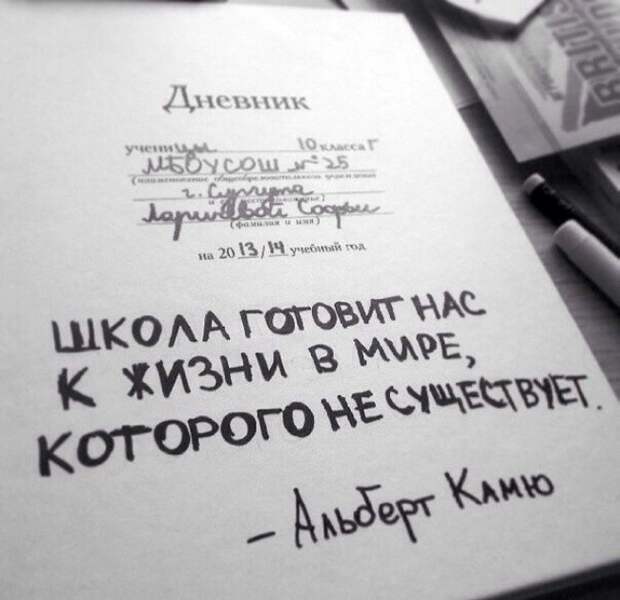 Дневник
ученицы 10 класса Г
МБОУ СОШ №25
(наименование общеобразовательного учреждения
г. Сургута
и местоположение)
Софьи
(фамилия и имя)
на 2013/14 учебный год
ШКОЛА ГОТОВИТ НАС
К ЖИЗНИ В МИРЕ,
КОТОРОГО НЕ СУЩЕСТВУЕТ.
- Альберт Камю
BRITIS